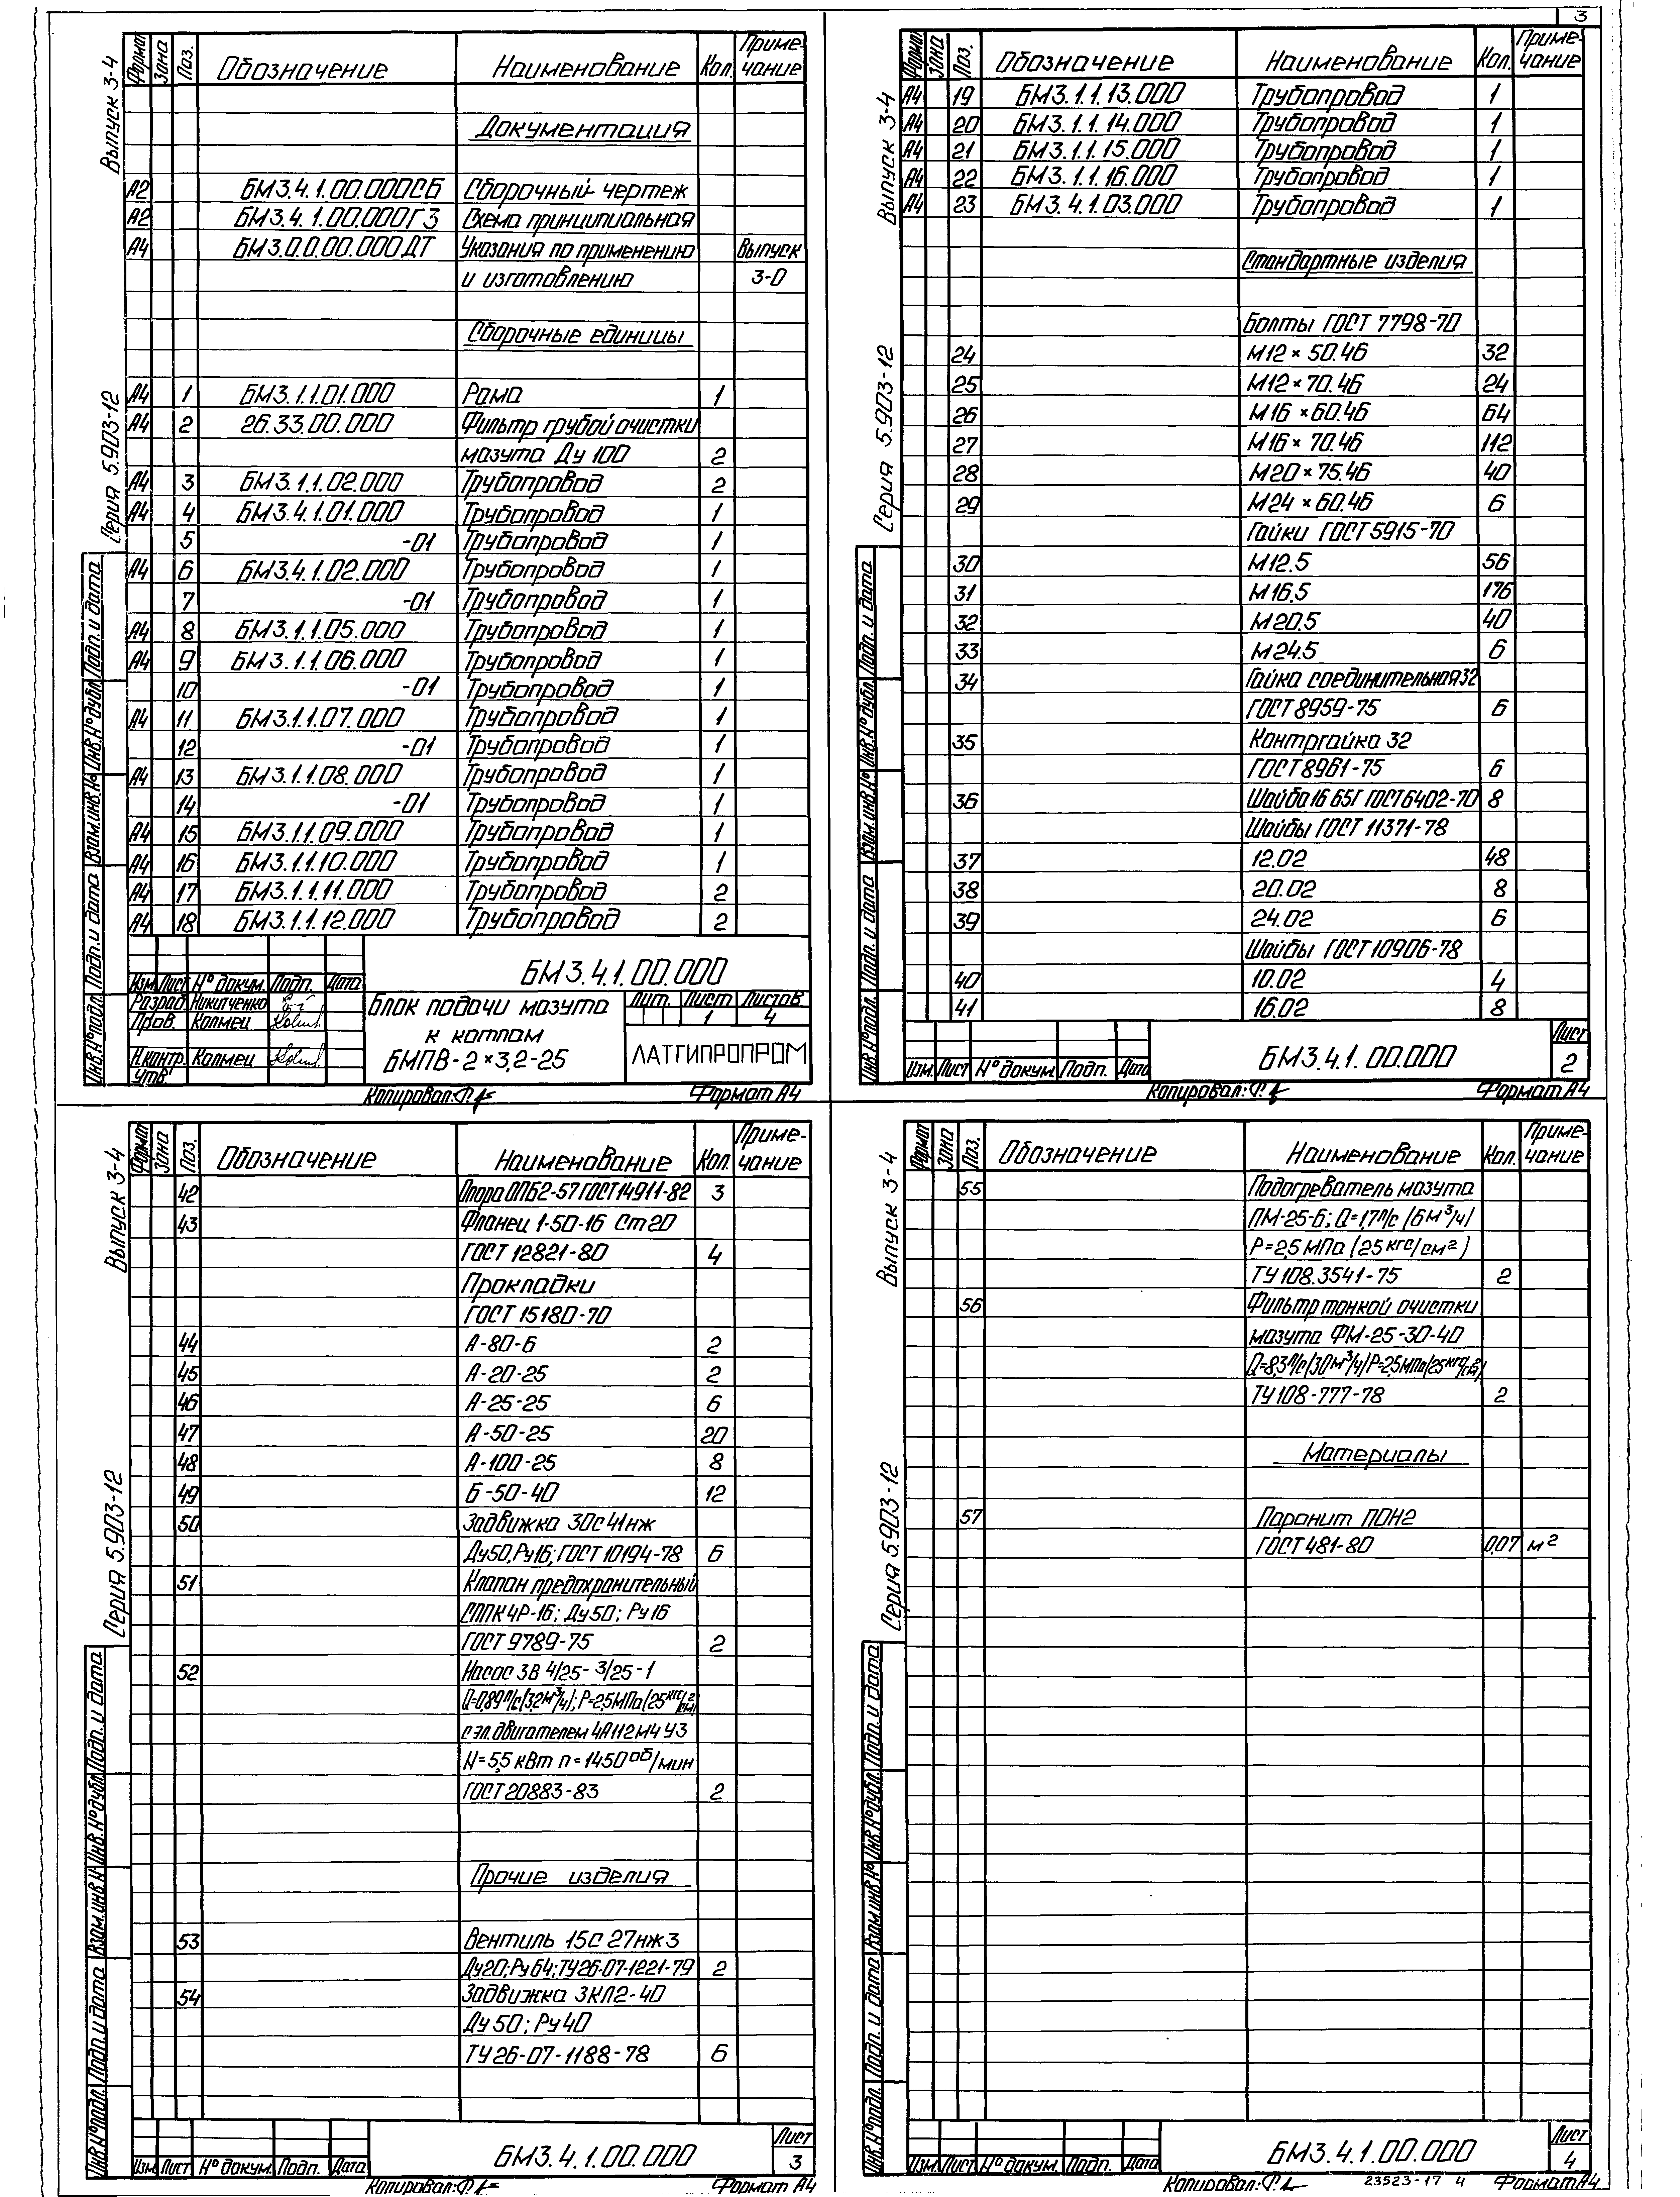 3
Выпуск 3-4
Серия 5.903-12
Формат Зона Поз. Обозначение Наименование Кол. Примечание
Документация
А2 БМ3.4.1.00.000СБ Сборочный чертеж
А2 БМ3.4.1.00.000Г3 Схема принципиальная
А4 БМ3.0.0.00.000ДТ Указания по применению Выпуск
и изготовлению 3-0
Сборочные единицы
А4 1 БМ3.1.1.01.000 Рама 1
А4 2 26.33.00.000 Фильтр грубой очистки
мазута Ду 100 2
А4 3 БМ3.1.1.02.000 Трубопровод 2
А4 4 БМ3.4.1.01.000 Трубопровод 1
5 -01 Трубопровод 1
А4 6 БМ3.4.1.02.000 Трубопровод 1
7 -01 Трубопровод 1
А4 8 БМ3.1.1.05.000 Трубопровод 1
А4 9 БМ3.1.1.06.000 Трубопровод 1
10 -01 Трубопровод 1
А4 11 БМ3.1.1.07.000 Трубопровод 1
12 -01 Трубопровод 1
А4 13 БМ3.1.1.08.000 Трубопровод 1
14 -01 Трубопровод 1
А4 15 БМ3.1.1.09.000 Трубопровод 1
А4 16 БМ3.1.1.10.000 Трубопровод 1
А4 17 БМ3.1.1.11.000 Трубопровод 2
А4 18 БМ3.1.1.12.000 Трубопровод 2
Инв.№подл. Подп.и дата Взам.инв.№ Инв.№дубл. Подп.и дата
БМ3.4.1.00.000
Изм. Лист № докум. Подп. Дата
Разраб. Никитченко
Пров. Колмец
Н.контр. Колмец
Утв.
Блок подачи мазута
к котлам
БМПВ-2×3,2-25
Лит. Лист Листов
1 4
ЛАТГИПРОПРОМ
Копировал: Формат А4
Выпуск 3-4
Серия 5.903-12
Формат Зона Поз. Обозначение Наименование Кол. Примечание
А4 19 БМ3.1.1.13.000 Трубопровод 1
А4 20 БМ3.1.1.14.000 Трубопровод 1
А4 21 БМ3.1.1.15.000 Трубопровод 1
А4 22 БМ3.1.1.16.000 Трубопровод 1
А4 23 БМ3.4.1.03.000 Трубопровод 1
Стандартные изделия
Болты ГОСТ 7798-70
24 М12×50.46 32
25 М12×70.46 24
26 М16×60.46 64
27 М16×70.46 112
28 М20×75.46 40
29 М24×60.46 6
Гайки ГОСТ 5915-70
30 М12.5 56
31 М16.5 176
32 М20.5 40
33 М24.5 6
34 Гайка соединительная 32
ГОСТ 8959-75 6
35 Контргайка 32
ГОСТ 8961-75 6
36 Шайба 16 65Г ГОСТ 6402-70 8
Шайбы ГОСТ 11371-78
37 12.02 48
38 20.02 8
39 24.02 6
Шайбы ГОСТ 10906-78
40 10.02 4
41 16.02 8
Инв.№подл. Подп.и дата Взам.инв.№ Инв.№дубл. Подп.и дата
Изм. Лист № докум. Подп. Дата
БМ3.4.1.00.000
Лист
2
Копировал: Формат А4
Выпуск 3-4
Серия 5.903-12
Формат Зона Поз. Обозначение Наименование Кол. Примечание
42 Опора ОПБ2-57 ГОСТ 14911-82 3
43 Фланец 1-50-16 Ст20
ГОСТ 12821-80 4
Прокладки
ГОСТ 15180-70
44 А-80-6 2
45 А-20-25 2
46 А-25-25 6
47 А-50-25 20
48 А-100-25 8
49 Б-50-40 12
50 Задвижка 30с41нж
Ду50, Ру16; ГОСТ 10194-78 6
51 Клапан предохранительный
СППК4Р-16; Ду50; Ру16
ГОСТ 9789-75 2
52 Насос 3В 4/25-3/25-1
Q=0,89л/с(3,2м³/ч); Р=2,5МПа(25кгс/см²)
с эл.двигателем 4А112М4У3
N=5,5 кВт n=1450 об/мин
ГОСТ 20883-83 2
Прочие изделия
53 Вентиль 15с27нж3
Ду20; Ру64; ТУ26-07-1221-79 2
54 Задвижка ЗКЛ2-40
Ду50; Ру40
ТУ26-07-1188-78 6
Инв.№подл. Подп.и дата Взам.инв.№ Инв.№дубл. Подп.и дата
Изм. Лист № докум. Подп. Дата
БМ3.4.1.00.000
Лист
3
Копировал: Формат А4
Выпуск 3-4
Серия 5.903-12
Формат Зона Поз. Обозначение Наименование Кол. Примечание
55 Подогреватель мазута
ПМ-25-6; Q=1,7л/с (6м³/ч)
Р=2,5МПа (25кгс/см²)
ТУ108.3541-75 2
56 Фильтр тонкой очистки
мазута ФМ-25-30-40
Q=8,3л/с(30м³/ч) Р=2,5МПа(25кгс/см²)
ТУ108-777-78 2
Материалы
57 Паронит ПОН2
ГОСТ 481-80 0,07 м²
Инв.№подл. Подп.и дата Взам.инв.№ Инв.№дубл. Подп.и дата
Изм. Лист № докум. Подп. Дата
БМ3.4.1.00.000
Лист
4
Копировал: 23523-17 4 Формат А4